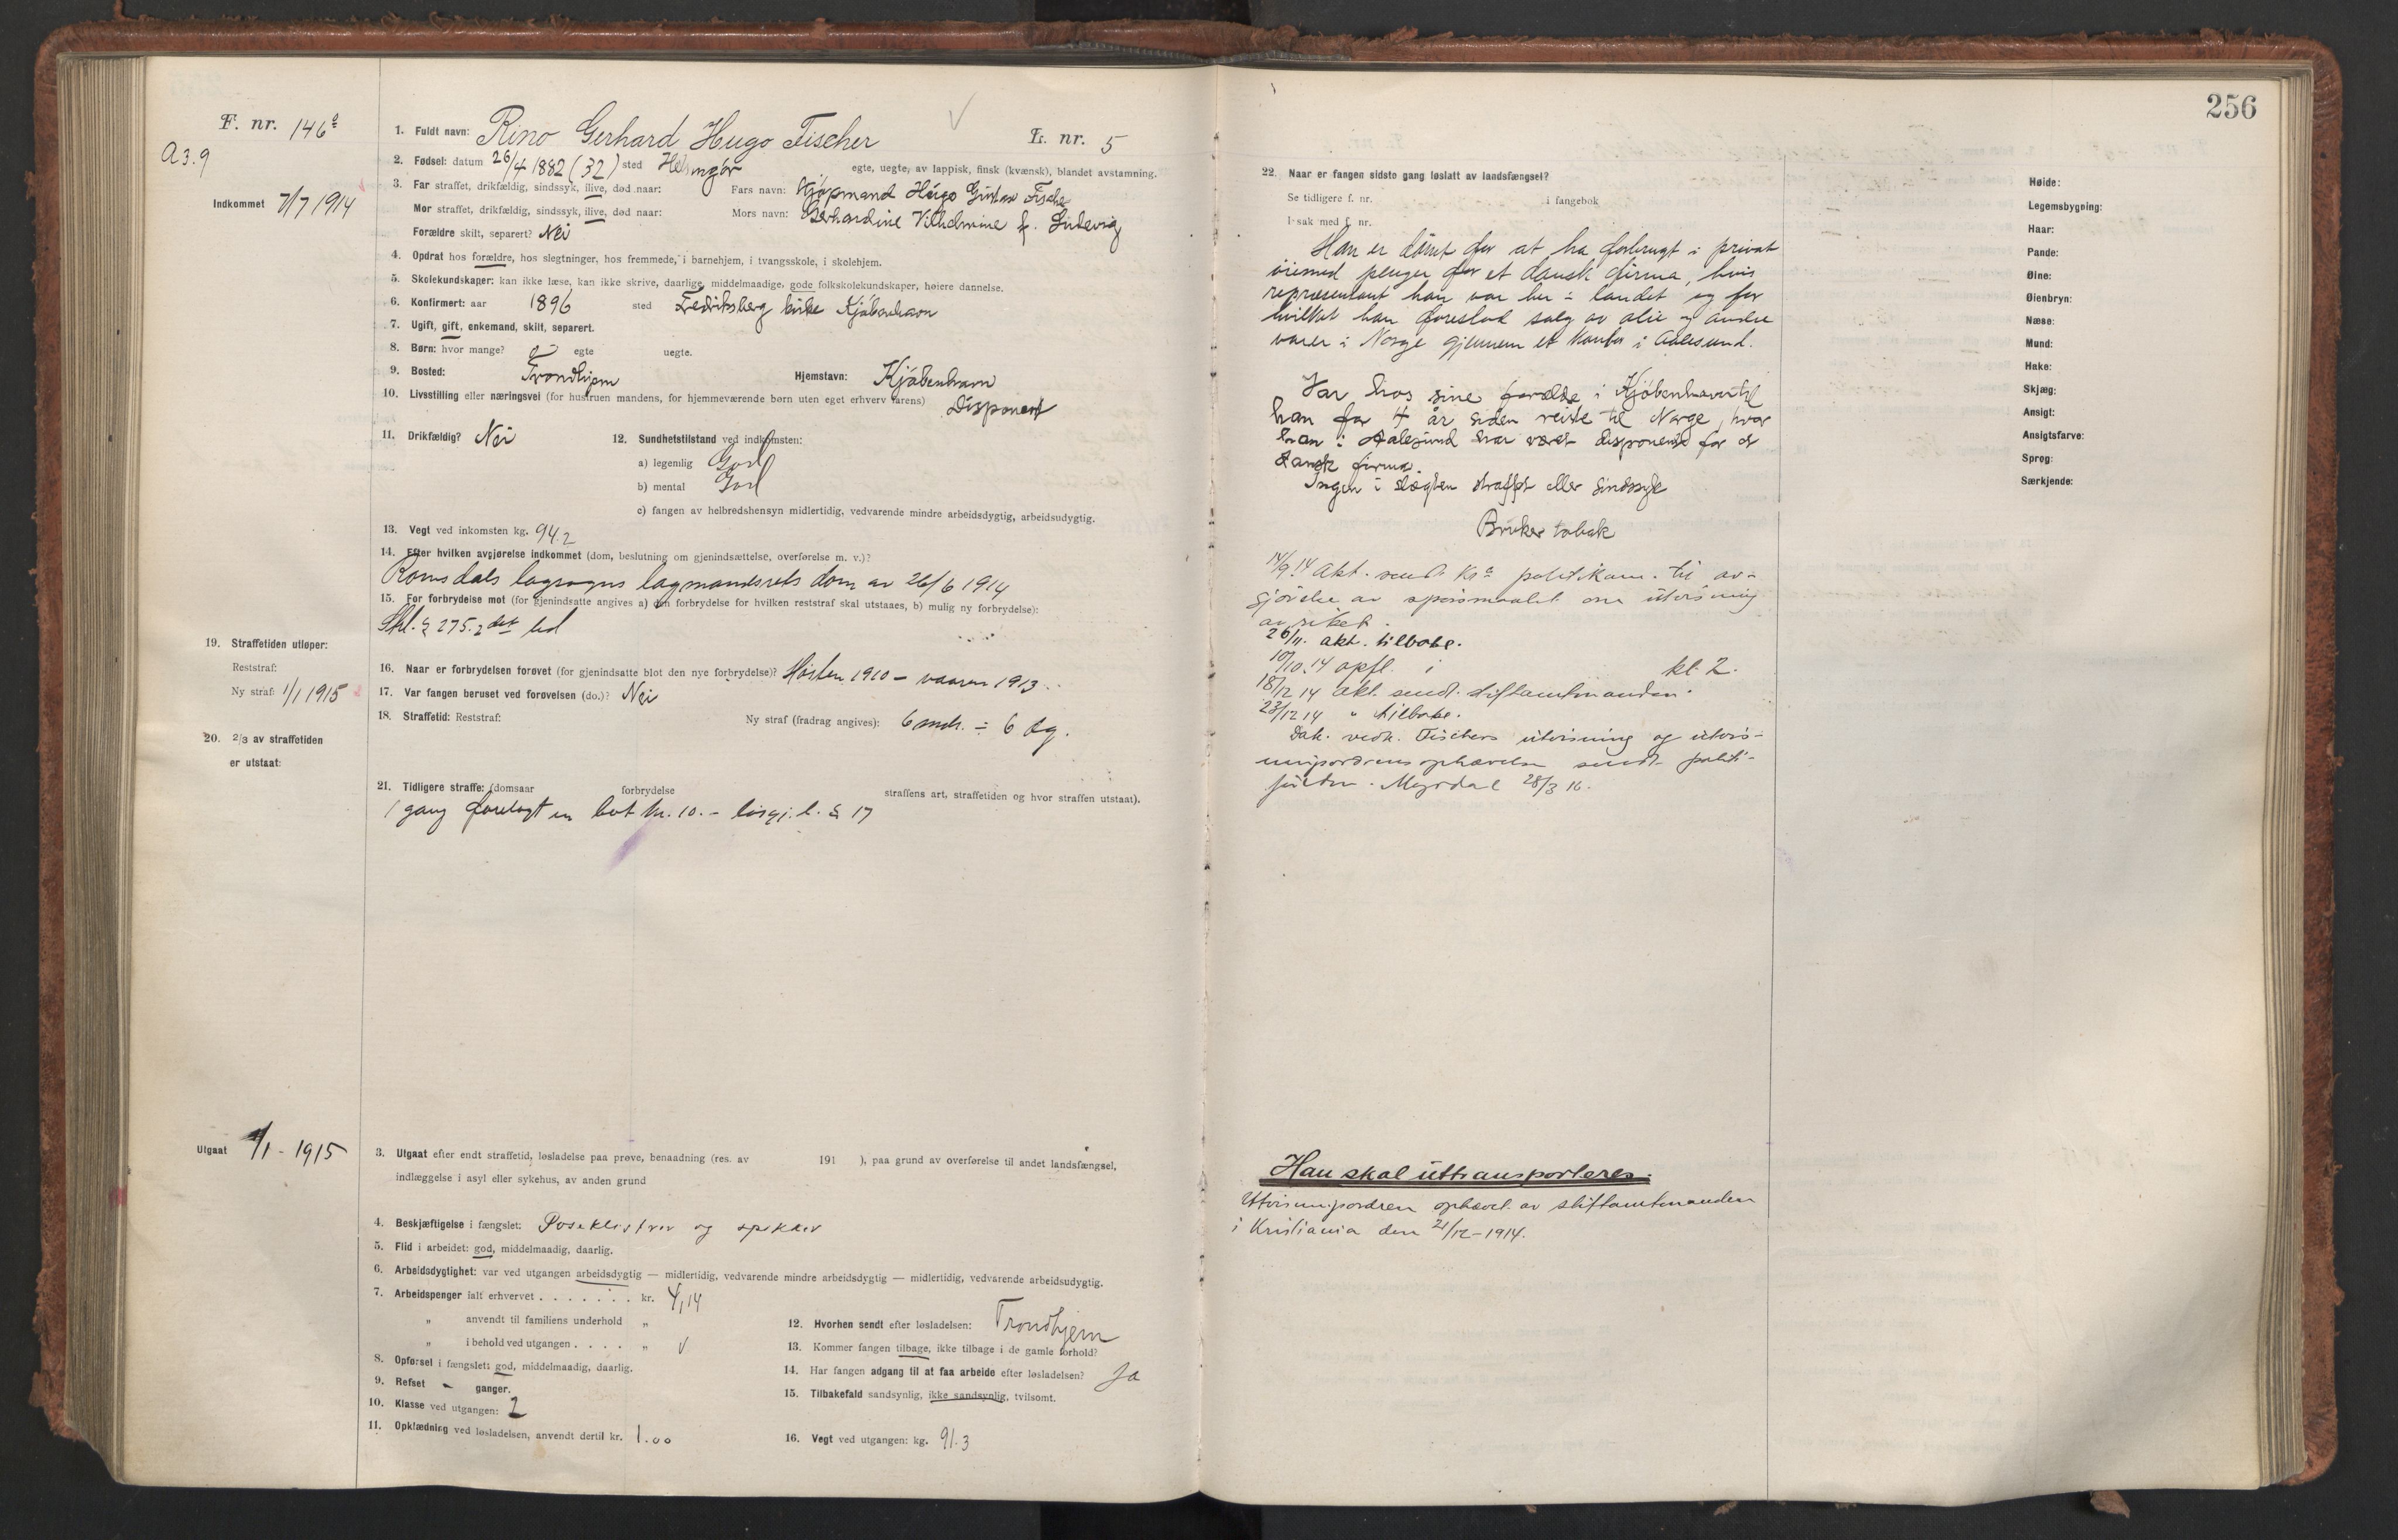 256
F. nr. 146a
A 3.9
Indkommet 7/7 1914
1. Fuldt navn: Rino Gerhard Hugo Fischer L. nr. 5
2. Fødsel: datum 26/4 1882 (32) sted Helsingør egte, uegte, av lappisk, finsk (kvænsk), blandet avstamning.
3. Far straffet, drikfældig, sindssyk, ilive, død naar: Fars navn: Kjøpmand Hugo Gustav Fischer
Mor straffet, drikfældig, sindssyk, ilive, død naar: Mors navn: Gerhardine Vilhelmine f. Ludevig
Forældre skilt, separert? Nei
4. Opdrat hos forældre, hos slegtninger, hos fremmede, i barnehjem, i tvangsskole, i skolehjem.
5. Skolekundskaper: kan ikke læse, kan ikke skrive, daarlige, middelmaadige, gode folkskolekundskaper, høiere dannelse.
6. Konfirmert: aar 1896 sted Fedriksberg kirke Kjøbenhavn
7. Ugift, gift, enkemand, skilt, separert.
8. Børn: hvor mange? 0 egte uegte.
9. Bosted: Trondhjem Hjemstavn: Kjøbenhavn
10. Livsstilling eller næringsvei (for hustruen mandens, for hjemmeværende børn uten eget erhverv farens) Disponent
11. Drikfældig? Nei 12. Sundhetstilstand ved indkomsten:
a) legemlig God
b) mental God
c) fangen av helbredshensyn midlertidig, vedvarende mindre arbeidsdygtig, arbeidsudygtig.
13. Vegt ved inkomsten kg. 94.2
14. Efter hvilken avgjørelse indkommet (dom, beslutning om gjenindsættelse, overførelse m. v.)?
Romsdals lagsogns lagmandsrets dom av 26/6 1914
15. For forbrydelse mot (for gjenindsatte angives a) den forbrydelse for hvilken reststraf skal utstaaes, b) mulig ny forbrydelse):
Strl. § 275. 2det led
19. Straffetiden utløper:
Reststraf:
Ny straf: 1/1 1915
16. Naar er forbrydelsen forøvet (for gjenindsatte blot den nye forbrydelse)? Høsten 1910 – vaaren 1913
17. Var fangen beruset ved forøvelsen (do.)? Nei
18. Straffetid: Reststraf: Ny straf (fradrag angives): 6 mdr. ÷ 6 dg.
20. 2/3 av straffetiden
er utstaat:
21. Tidligere straffe: (domsaar forbrydelse straffens art, straffetiden og hvor straffen utstaat).
1 gang forelagt en bot kr. 10.– løsgj. l. § 17
Utgaat 1/1 - 1915
3. Utgaat efter endt straffetid, løsladelse paa prøve, benaadning (res. av 191 ), paa grund av overførelse til andet landsfængsel,
indlæggelse i asyl eller sykehus, av anden grund
4. Beskjæftigelse i fængslet: Poseklistrer og spikker
5. Flid i arbeidet: god, middelmaadig, daarlig.
6. Arbeidsdygtighet: var ved utgangen arbeidsdygtig — midlertidig, vedvarende mindre arbeidsdygtig — midlertidig, vedvarende arbeidsudygtig.
7. Arbeidspenger ialt erhvervet . . . . . . . kr. 4,14
„ anvendt til familiens underhold „
„ i behold ved utgangen . . . . „ √
8. Opførsel i fængslet: god, middelmaadig, daarlig.
9. Refset – ganger.
10. Klasse ved utgangen: 2
11. Opklædning ved løsladelsen, anvendt dertil kr. 1.00
12. Hvorhen sendt efter løsladelsen: Trondhjem
13. Kommer fangen tilbage, ikke tilbage i de gamle forhold?
14. Har fangen adgang til at faa arbeide efter løsladelsen? Ja
15. Tilbakefald sandsynlig, ikke sandsynlig, tvilsomt.
16. Vegt ved utgangen: kg. 91.3
22. Naar er fangen sidste gang løslatt av landsfængsel?
Se tidligere f. nr. i fangebok
I sak med f. nr.
Han er dømt for at ha forbrugt i privat
øiemed penger for et dansk firma, hvis
repræsentant han var her i landet og for
hvilket han forestod salg av olie og andre
varer i Norge gjennem et Kontor i Aalesund.
Var hos sine forældre i Kjøbenhavn til
han for 4 år siden reiste til Norge, hvor
han i Aalesund har været disponent for et
dansk firma.
Ingen i slægten straffet eller sindssyk
Bruker tobak
14/9.14 Akt. sendt Kra politikam. til av-
gjørelse av spørsmaalet om utvisning
av riket.
26/11. akt. tilbake.
10/10.14 opfl. i kl. 2.
18/12 14 Akt. sendt stiftamtmanden.
23/12 14 " tilbake.
Dok. vedk. Fischers utvisning og utvis-
ningsordrens ophævelse sendt politi-
. Myrdal 28/3 16.
Han skal uttransporteres.
Utvisningsordren ophævet av stiftamtmanden
i Kristiania den 21/12-1914.
Høide:
Legemsbygning:
Haar:
Pande:
Øine:
Øienbryn:
Næse:
Mund:
Hake:
Skjæg:
Ansigt:
Ansigtsfarve:
Sprog:
Særkjende: